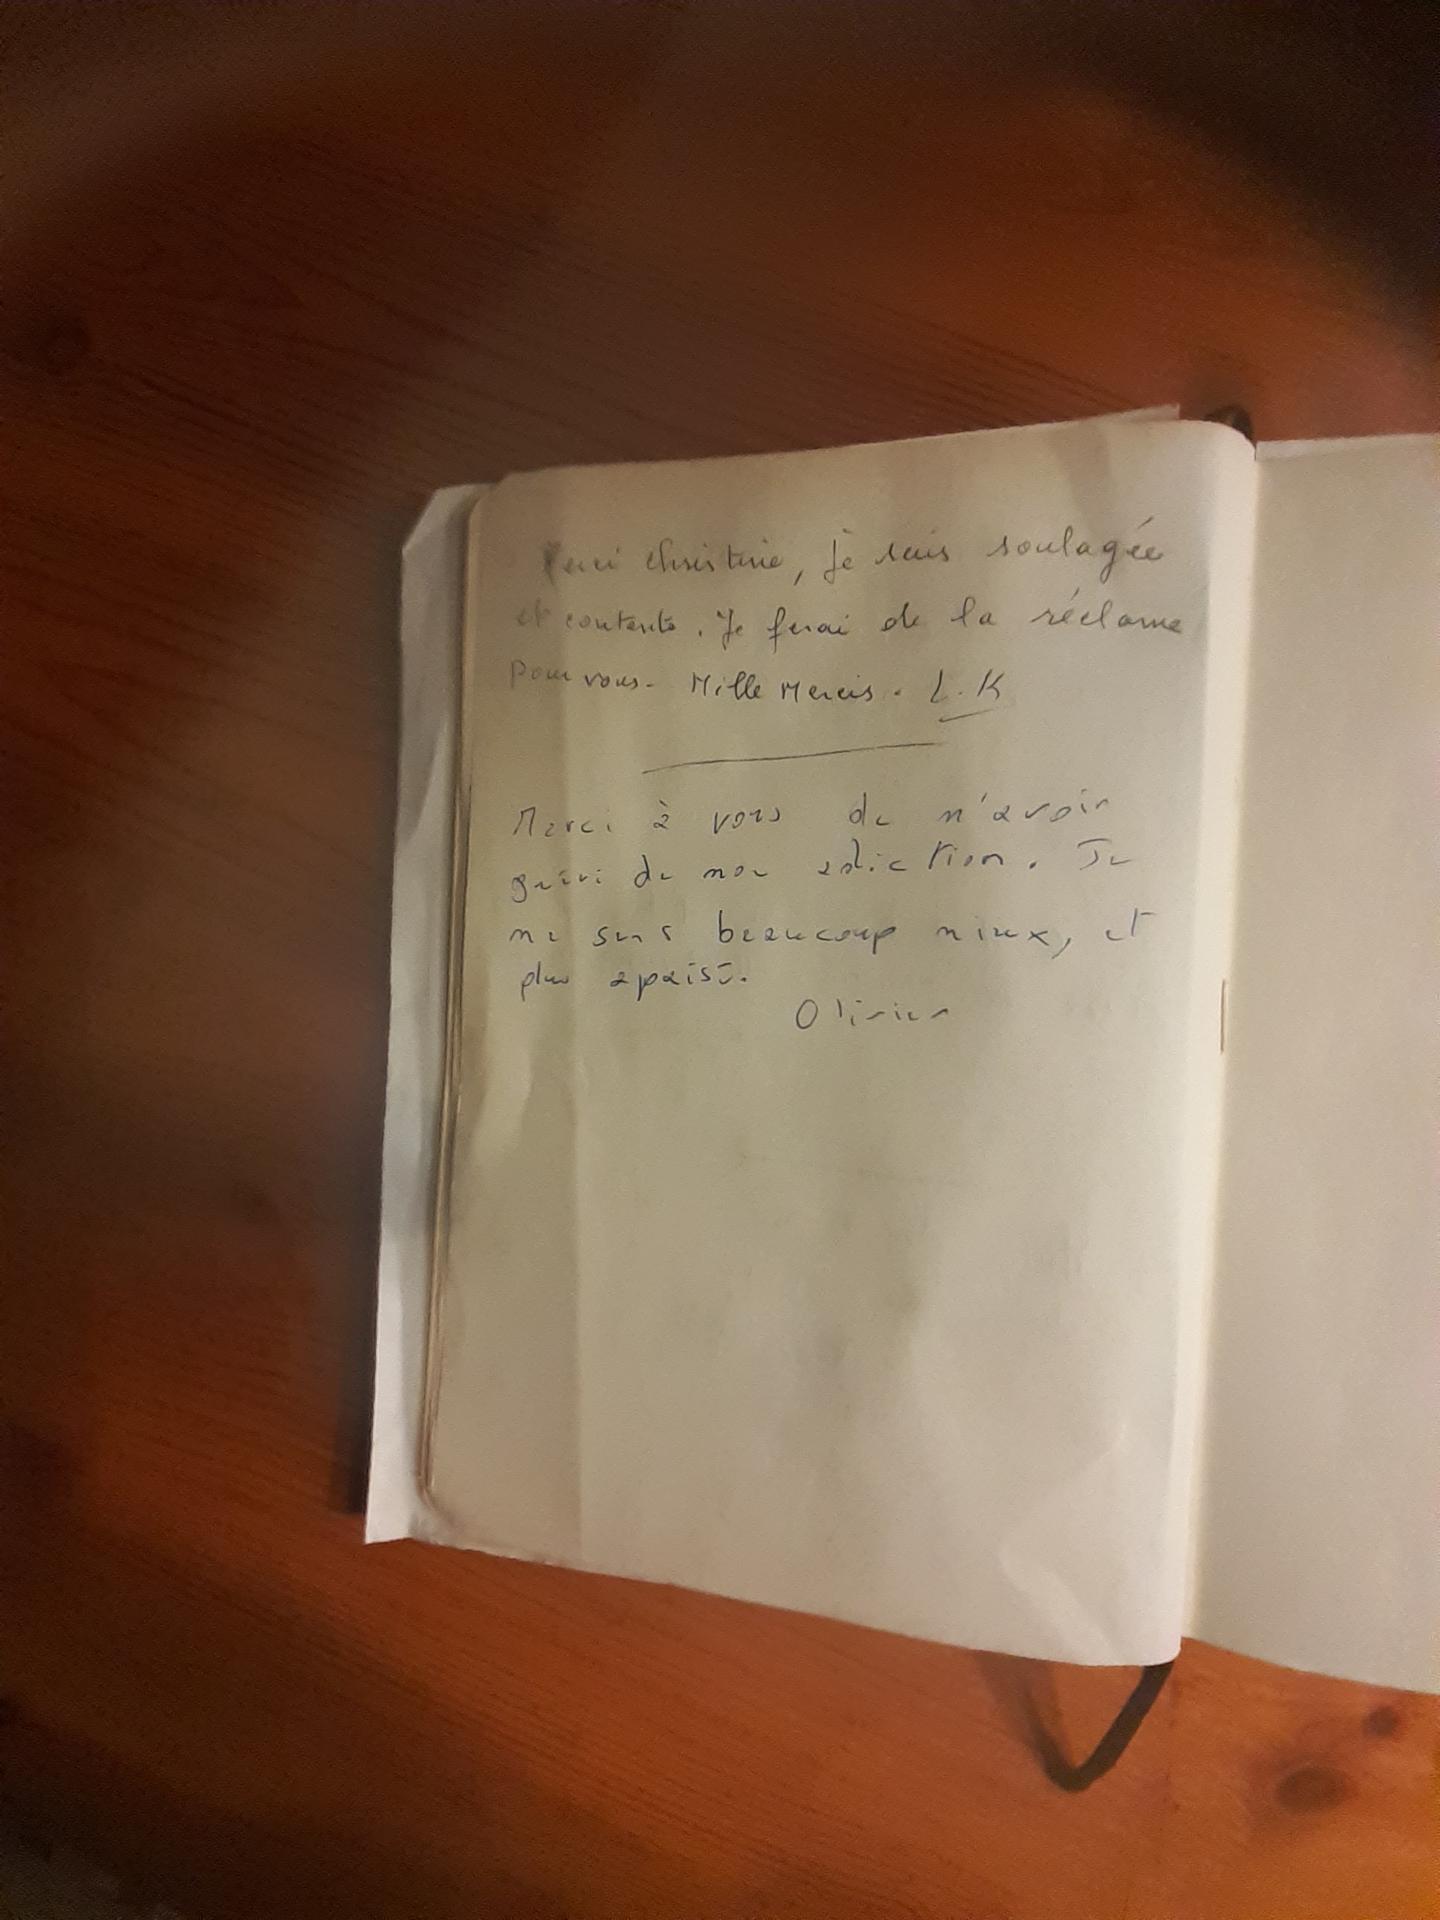 Merci Christine, je suis soulagée
et contente. Je ferai de la réclame
pour vous. Mille Mercis. L.K
Merci à vous de m'avoir
guéri de mon addiction. Je
me sens beaucoup mieux, et
plus apaisé.
Olivier